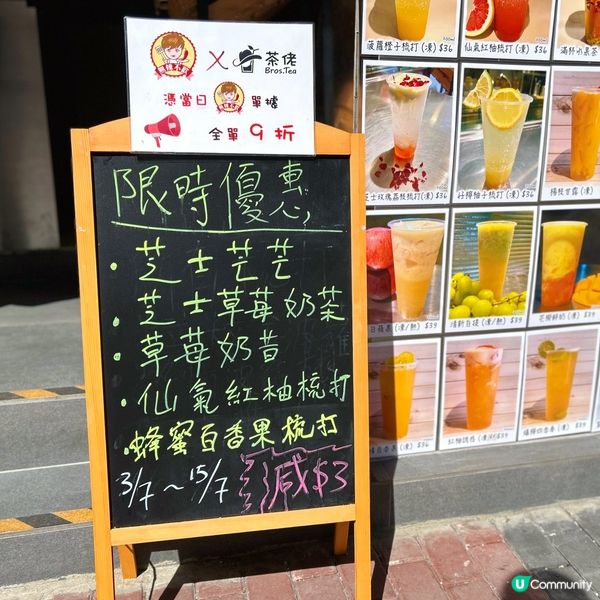 茶佬
Bros.Tea
憑當日
單據
全單 9 折
限時優惠
· 芝士芒芒
· 芝士草莓奶茶
· 草莓奶昔
· 仙氣紅柚梳打
· 蜂蜜百香果梳打
3/7 ~ 15/7
減$3
菠蘿橙子梳打(凍) $36
仙氣紅柚梳打(凍) $36
芝士玫瑰荔枝梳打(凍) $36
好檸柚子梳打(凍) $36
楊枝甘露(凍)
(凍/熱) $39
清新百提(凍/熱) $39
芒椰鮮奶(凍) $39
U Community